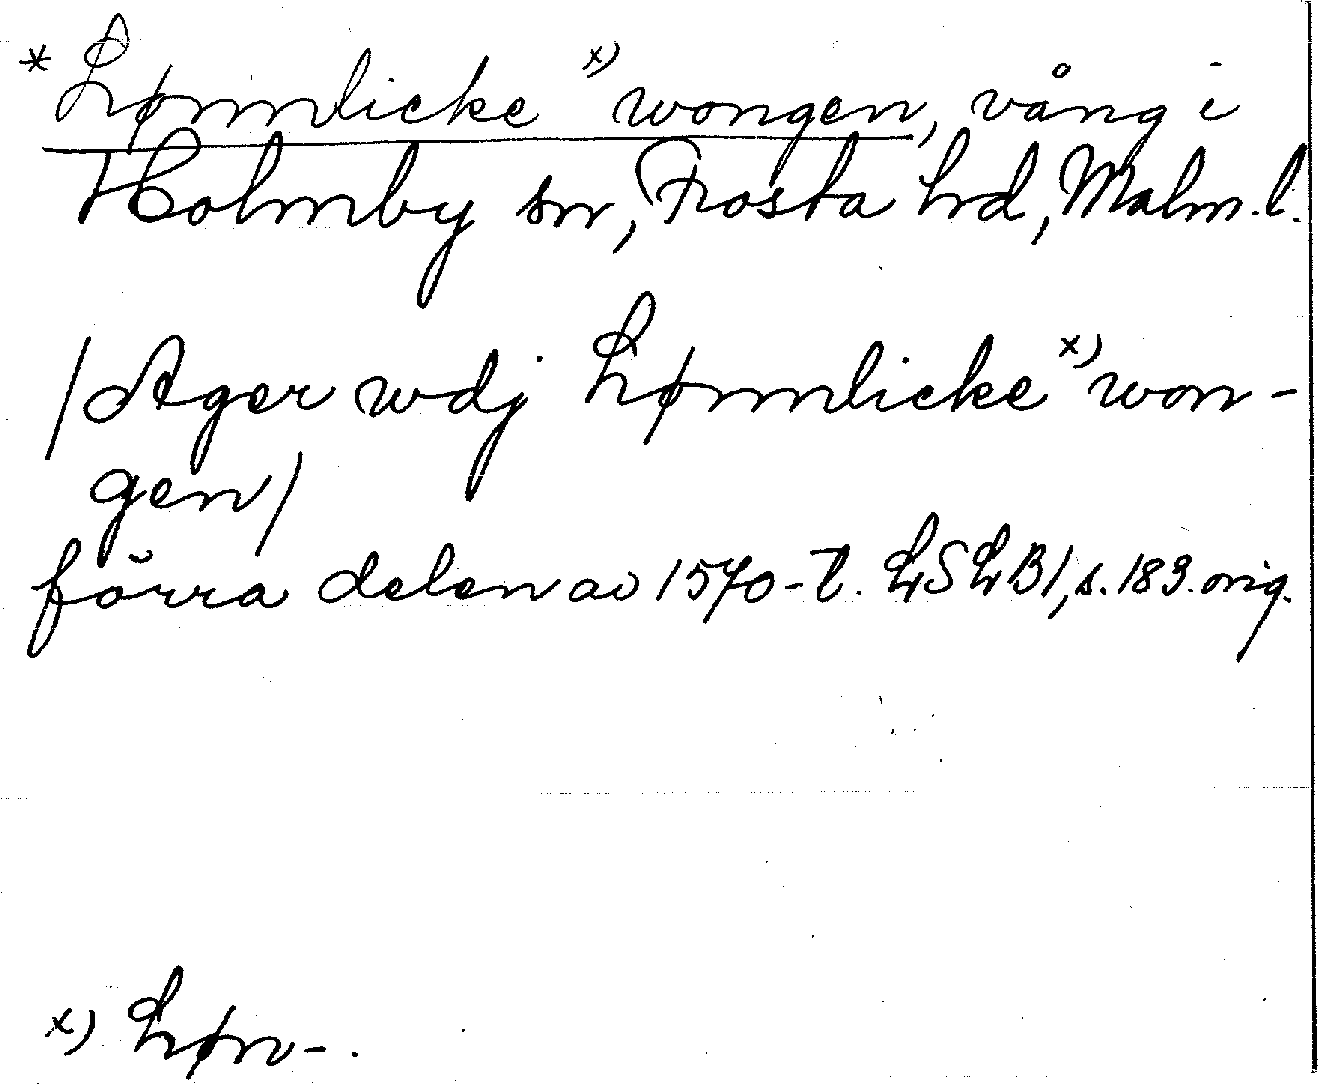 * Lønnlicke x) wongen, vång i
Holmby sn, Frosta hd, Malm. l.
/Ager wdj Lønnlicke x) won-
gen/
förra delen av 1570-t. LSLB1, s. 183. orig.
x) Løn-.